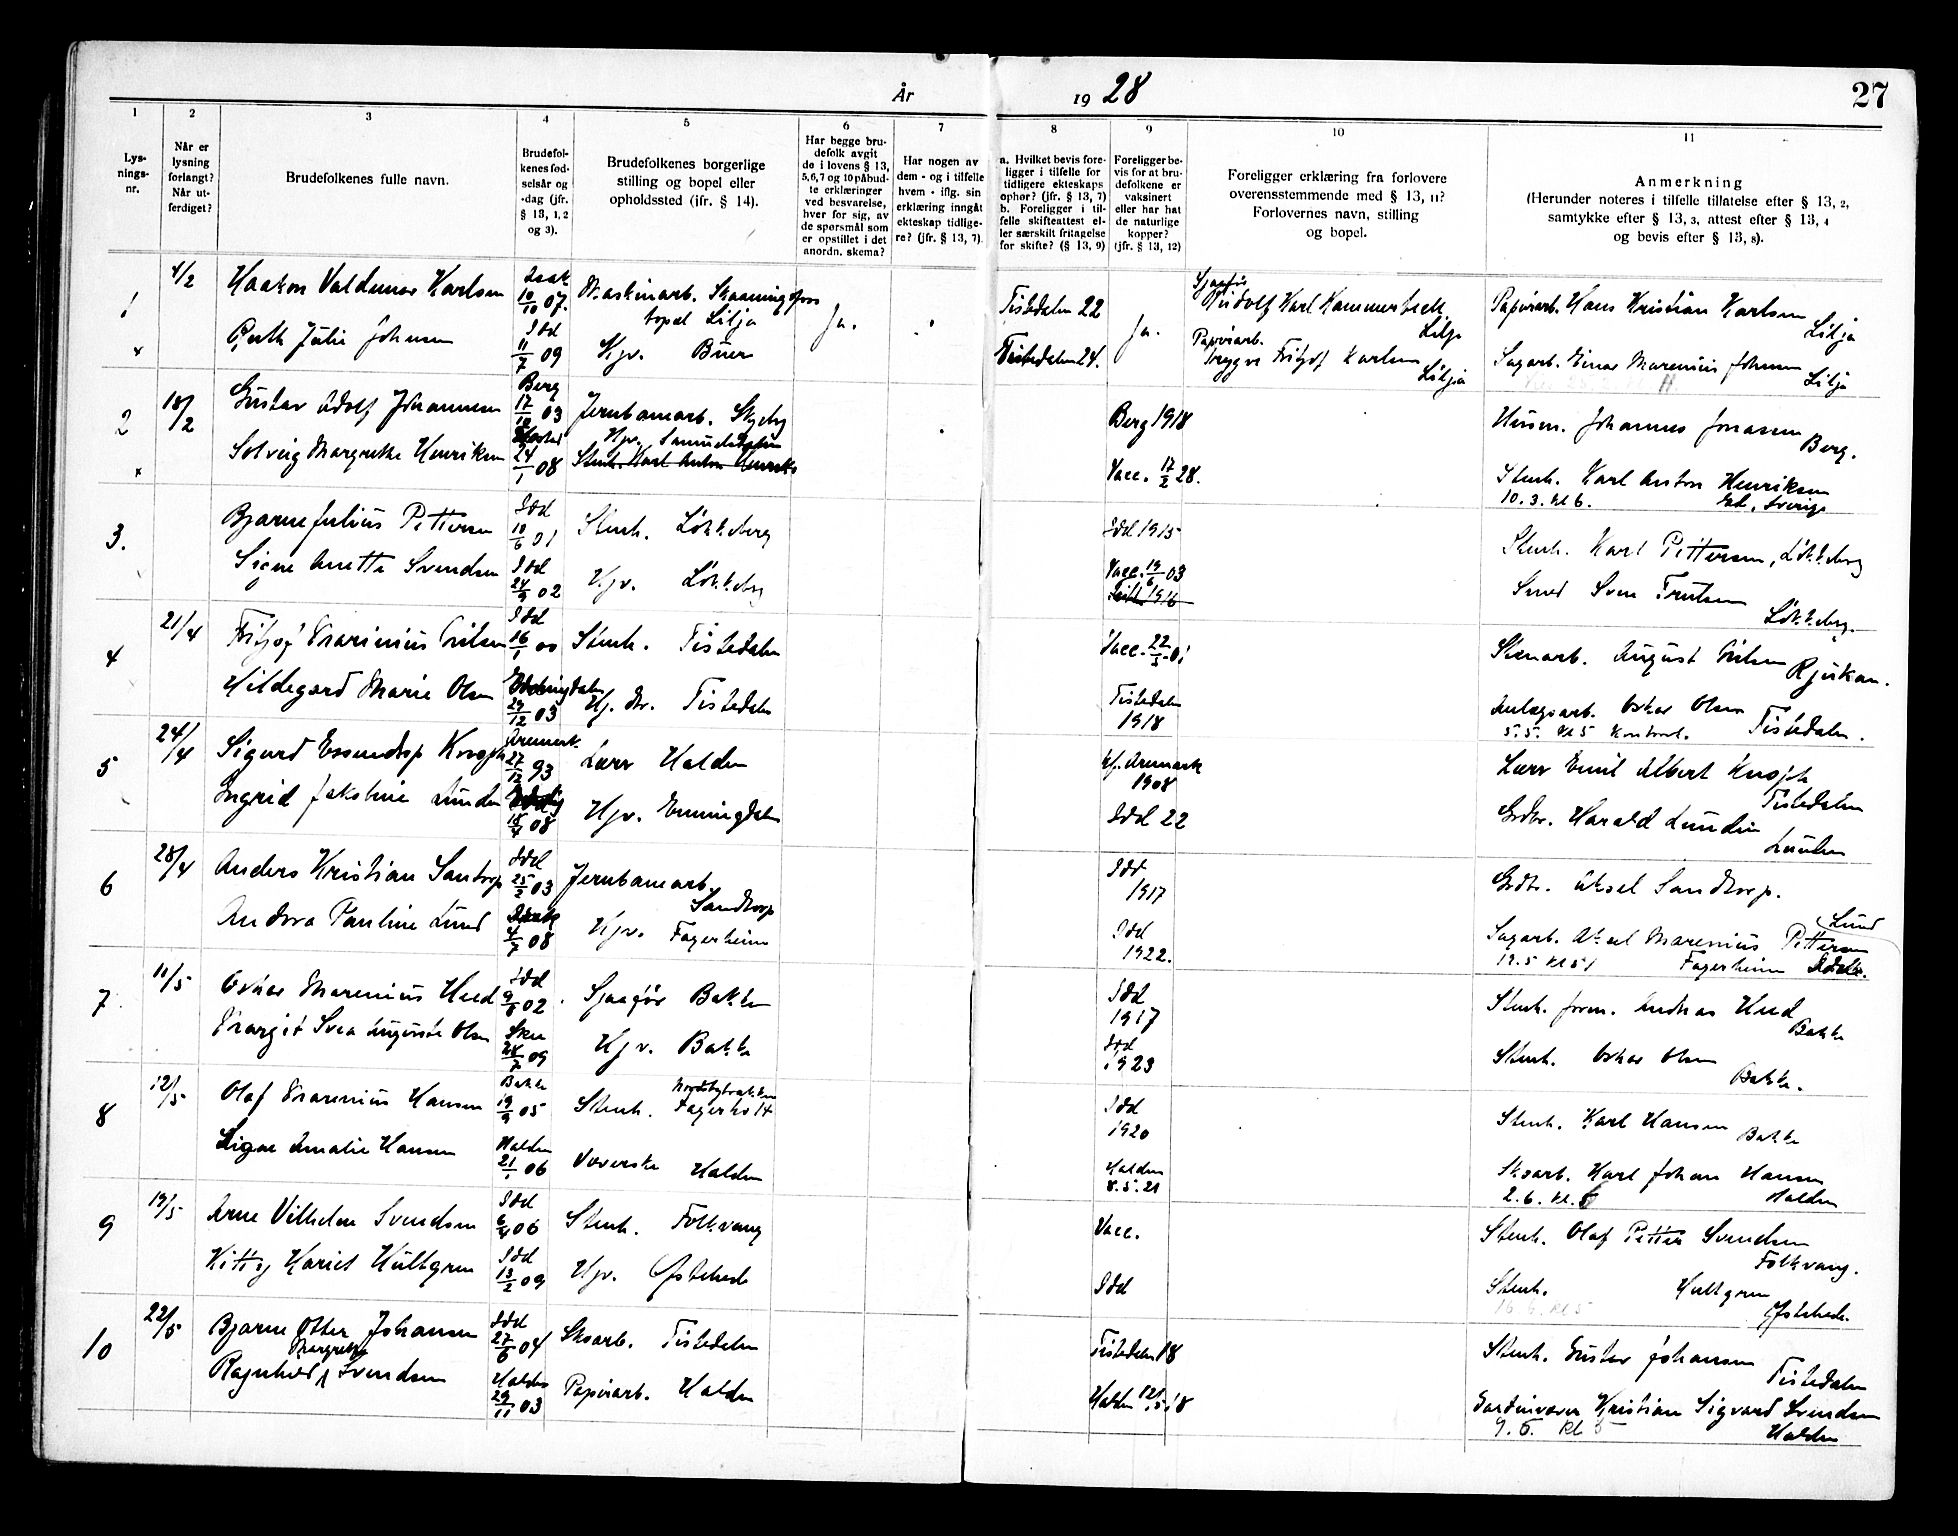 År 19 28
27
1
2
3
4
5
6
7
8
9
10
11
Lys-
nings-
nr.
Når er
lysning
forlangt?
Når ut-
ferdiget?
Brudefolkenes fulle navn.
Brudefol-
kenes fød-
selsår og
-dag (jfr.
§ 13, 1, 2
og 3).
Brudefolkenes borgerlige
stilling og bopel eller
opholdssted (jfr. § 14).
Har begge bru-
defolk avgit
de i lovens § 13,
5, 6, 7 og 10 påbud-
te erklæringer
ved besvarelse,
hver for sig, av
de spørsmål som
er opstillet i det
anordn. skema?
Har nogen av
dem - og i tilfelle
hvem - iflg. sin
erklæring inngåt
ekteskap tidlige-
re? (jfr. § 13, 7).
a. Hvilket bevis fore-
ligger i tilfelle for
tidligere ekteskaps
ophør? (jfr. § 13, 7)
b. Foreligger i til-
felle skifteattest el-
ler særskilt fritagelse
for skifte? (§ 13, 9)
Foreligger be-
vis for at bru-
defolkene er
vaksinert
eller har hat
de naturlige
kopper?
(jfr. § 13, 12)
Foreligger erklæring fra forlovere
overensstemmende med § 13, 11?
Forlovernes navn, stilling
og bopel.
Anmerkning
(Herunder noteres i tilfelle tillatelse efter § 13, 2,
samtykke efter § 13, 3, attest efter § 13, 4
og bevis efter § 13, 8).
1 4/2 Haakon Valdemar Karlsen 10/10 07. Maskinarb. Skaaningsfoss
bopel Lilja Ja. Tistedalen 22 Ja. Rudolf Karl Kammerbeck Lilja Papirarb. Hans Kristian Karlsen Lilja
Ruth Julie Johnsen Idd 11/7 09 Hjv. Buer Tistedalen 24. Papirarb. Tryggve Fritjof Karlsen Lilja Sagarb. Einar Marenius Johnsen Lilja
2 18/2 Gustav Adolf Johannesen Berg 17/10 03 Jernbanearb. Skjeberg Berg 1918 Husm. Johannes Jonassen Berg.
Solveig Margrethe Henriksen 24/1 08 Hjv.
Stenh. Karl Anton Henriks Vacc. 17/2 28. Stenh. Karl Anton Henriksen
10.3. kl 6. Ed, Sverige
3. Bjarne Julius Pettersen Idd 10/6 01 Stenh. Løkkeberg Idd 1915 Stenh. Karl Pettersen, Løkkeberg
Signe Anette Svendsen Idd 24/9 02 Hjv. Løkkeberg Vacc. 19/6 03 Smed Sven Løkkeberg.
4 21/4 Fritjof Marinius Nilsen Idd 16/1 00 Stenh. Tistedalen Vacc. 22/5 01 Stenarb. August Nilsen Rjukan.
Hildegard Marie Olsen 29/12 03 Tistedalen Tistedalen
1918 Anlægsarb. Oskar Olsen Tistedalen.
5.5. kl 5 Kontrol.
5 24/4 Sigurd Aremark 27/12 93 Lærer Halden Aremark
1908 Lærer Emil Albert Tistedalen
Ingrid Jakobine Lunden 18/4 08 Hjv. Enningdalen Idd 22 Grdbr. Harald Lunden
Lunden
6 28/4 Anders Kristian Santorp Idd 25/2 03 Jernbanearb.
Sandtorp Idd
1917 Grdbr. Aksel Sandtorp.
Andora Pauline Lund 4/7 08 Hjv. Fagerheim Idd
1922. Sagarb. Aksel Marenius Pettersen Lund
19.5 kl 5 Fagerheim
7 11/5 Oskar Marenius Hued Idd 02 Sjaafør Bakke Idd
1917 Stenh. form. Andreas Hued
Bakke
Margit Svea Auguste Olsen 28/7 09 Hjv. Bakke Idd
1923 Stenh. Oskar Olsen
Bakke.
8 12/5 Olaf Marenius Hansen Bakke 19/9 05 Stenh. Fagerholt Idd
1920 Stenh. Karl Hansen Bakke
Signe Amalie Hansen Halden 21/1 06 Væverske Halden Halden
8.5.21 Skoarb. Karl Johan Hansen
2.6. kl. 6 Halden
9 19/5 Arne Vilhelm Svendsen Idd 06 Stenh. Folkvang Vacc. Stenh. Olaf Petter Svendsen
Folkvang.
Kitty Hariet Hultgren Idd 13/2 09 Hjv. Østehede Idd Stenh. Hultgren
16 6. kl 5 Østehede.
10 22/5 Bjarne Otter Johansen Idd 27/6 04 Skoarb. Tistedalen Tistedalen 18 Stenh. Gustav Johansen
Tistedalen
Ragnhild Margrethe Svendsen Halden 29/11 03 Papirarb. Halden Halden Gardinvæver Kristian Sigvard Svendsen
9.6. kl 5 Halden